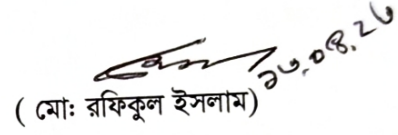 ২৩.০৪.২৩
( মোঃ রফিকুল ইসলাম)